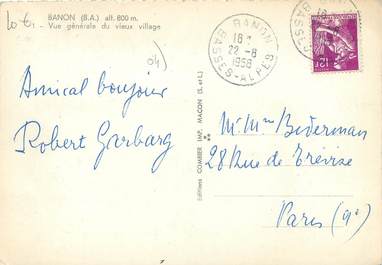 BANON (B.A.) alt. 800 m.
Vue générale du vieux village
04)
Amical bonjour
Robert Garbarg
Editions COMBIER IMP. MACON (S. et L.)
BANON
18 H
22 - 8
1958
BASSES-ALPES
12F
Mr Mme Biderman
28 Rue de Trévise
Paris (9e)